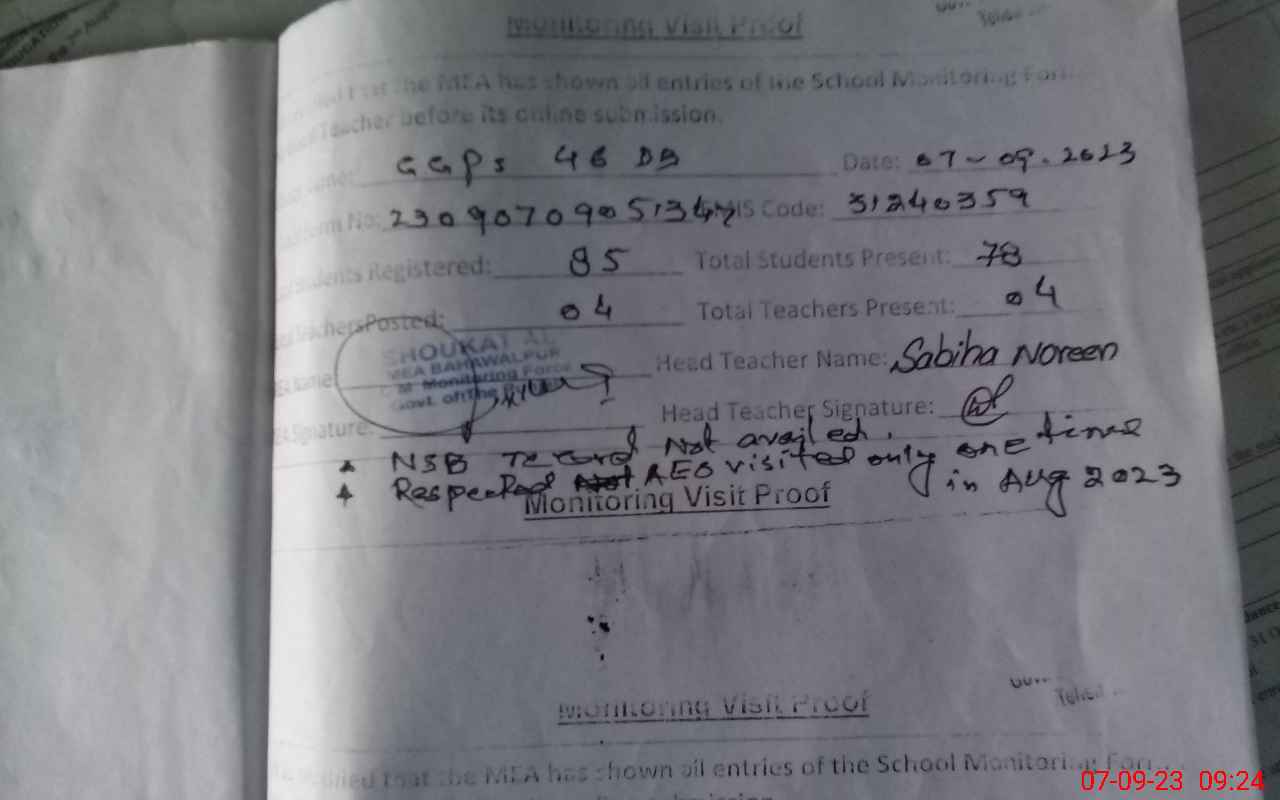 Monitoring Visit Proof
that the MEA has shown all entries of the School Monitoring Form
Teacher before its online submission.
GGPS 46 DB Date: 07-09-2023
No: EMIS Code: 31240359
Students Registered: 85 Total Students Present: 78
Teachers Posted: 04 Total Teachers Present: 04
SHOUKAT AL
MEA BAHAWALPUR
C M Monitoring Force
Govt. of the
Name: Head Teacher Name: Sabiha Noreen
Signature: Head Teacher Signature:
NSB record Not availed.
Respected AEO visited only one time
in Aug 2023
Monitoring Visit Proof
Monitoring Visit Proof
that the MEA has shown all entries of the School Monitoring Form
07-09-23 09:24